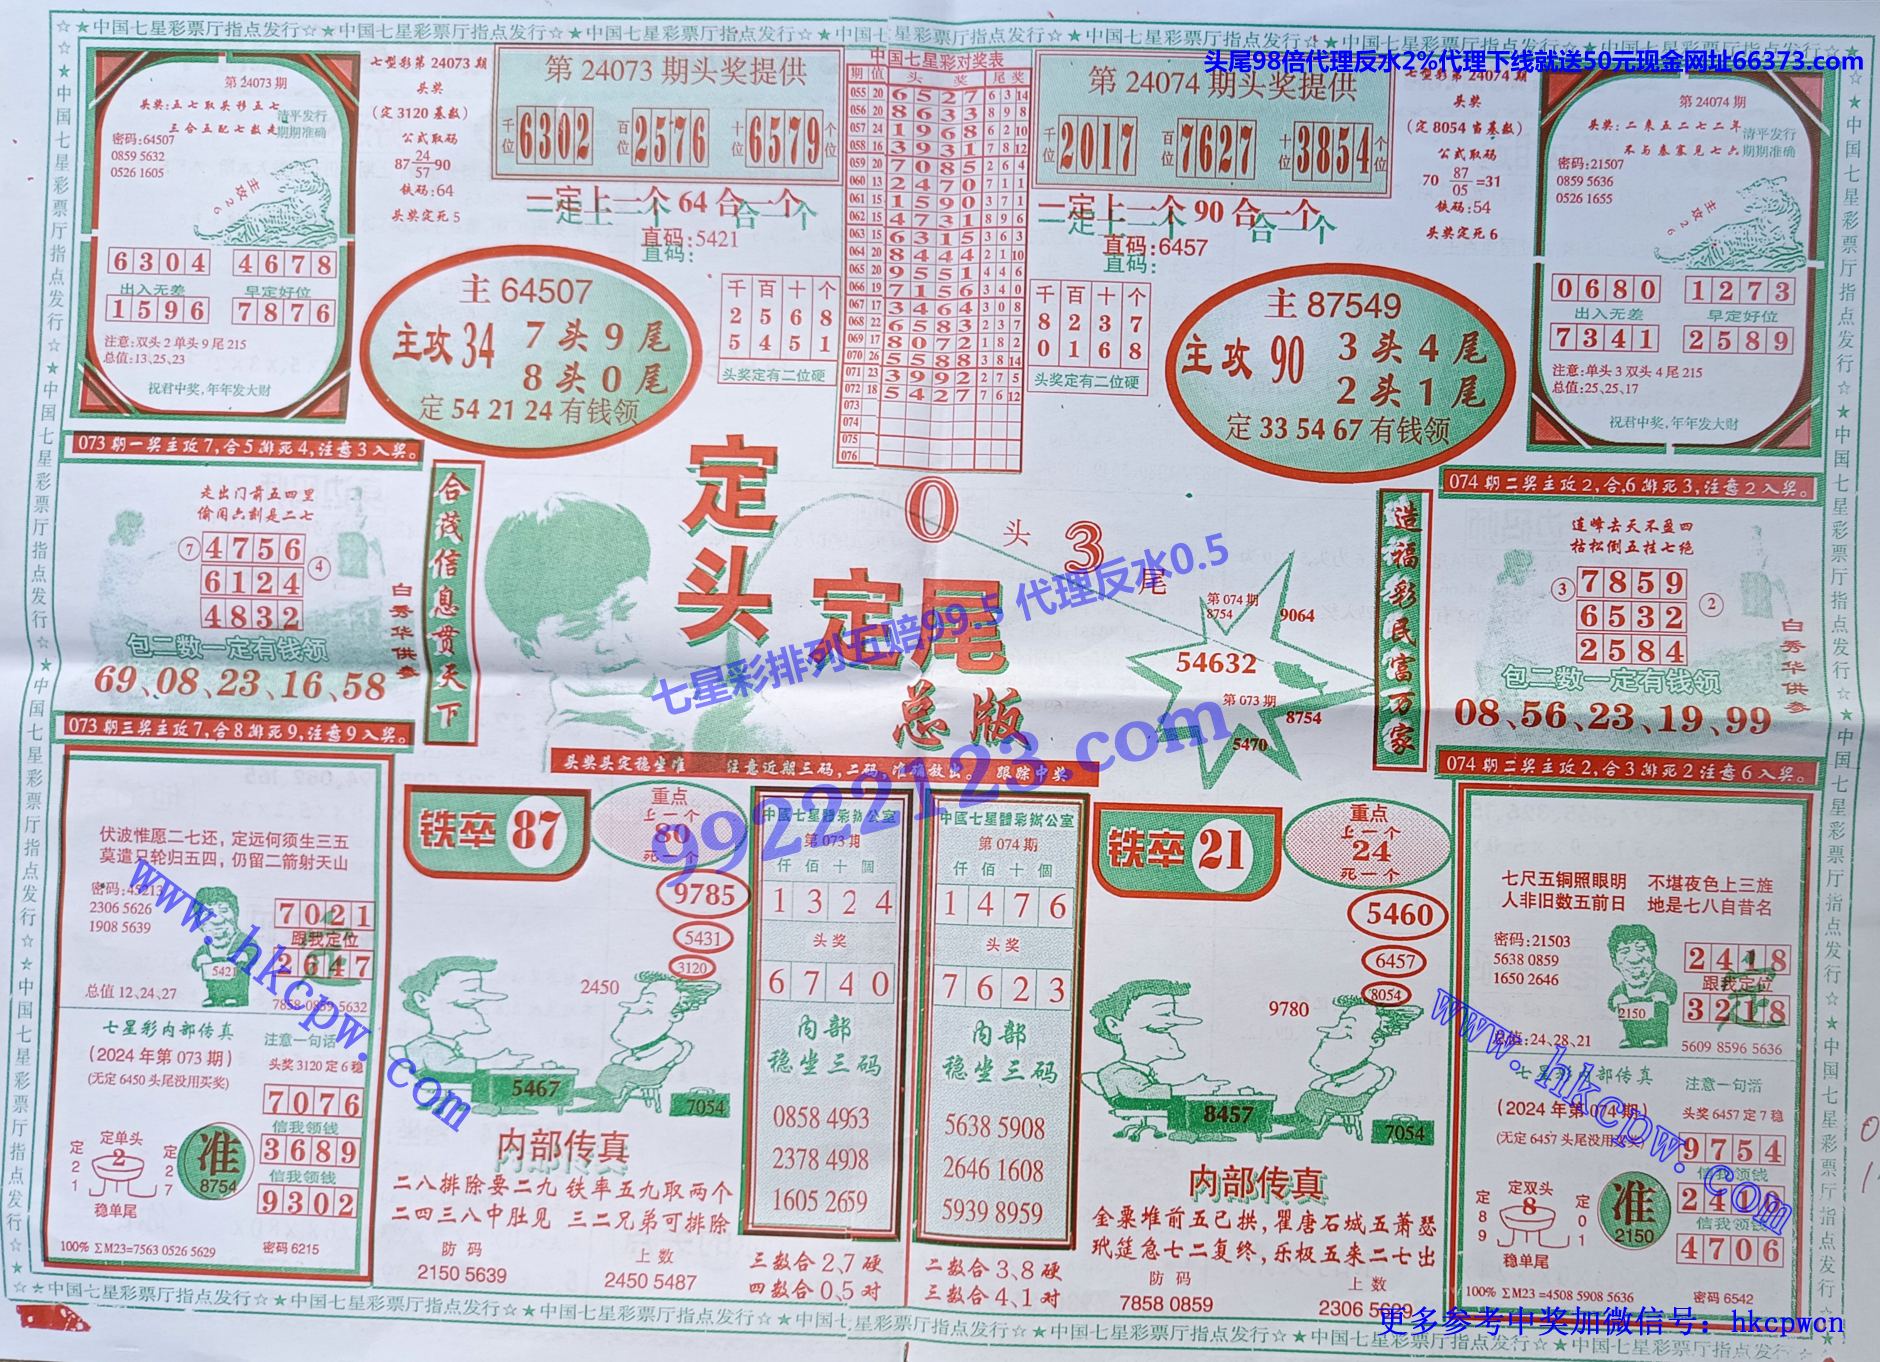 ☆★中国七星彩票厅指点发行☆★中国七星彩票厅指点发行☆★中国七星彩票厅指点发行☆★中国七星彩票厅指点发行☆★中国七星彩票厅指点发行☆
头尾98倍代理反水2%代理下线就送50元现金网址66373.com
第 24073 期
头奖:五七取头移五七
三合五配七数走
清平发行
期期准确
密码:64507
0859 5632
0526 1605
主攻26
6304 4678
出入无差 早定好位
1596 7876
注意:双头 2 单头 9 尾 215
总值:13、25、23
祝君中奖,年年发大财
七型彩第 24073 期
头奖
(定 3120 基数)
公式取码
87 24/57 -90
铁码:64
头奖定死 5
第 24073 期头奖提供
千位 6302 百位 2576 十位 6579 个位
一定上一个 64 合一个
直码:5421
主 64507
主攻 34 7 头 9 尾
8 头 0 尾
定 54 21 24 有钱领
千百十个
2568
5451
头奖定有二位硬
中国七星彩对奖表
期 值 头奖 尾奖
055 20 6527 6 3 14
056 20 8633 8 9 8
057 24 1968 6 2 10
058 16 3931 7 8 12
059 20 7085 2 6 4
060 13 2470 7 1 1
061 15 1590 3 7 1
062 15 4731 8 9 6
063 15 6315 3 6 3
064 20 8444 2 1 10
065 20 9551 4 4 6
066 19 7156 3 4 0
067 17 3464 3 0 8
068 22 6583 2 3 7
069 17 8072 1 8 2
070 26 5588 3 8 14
071 23 3992 2 7 5
072 18 5427 7 6 12
073
074
075
076
第 24074 期头奖提供
千位 2017 百位 7627 十位 3854 个位
一定上一个 90 合一个
直码:6457
千百十个
8237
0168
头奖定有二位硬
主 87549
主攻 90 3 头 4 尾
2 头 1 尾
定 33 54 67 有钱领
七型彩第 24074 期
头奖
(定 8054 当基数)
公式取码
70 87/05 =31
铁码:54
头奖定死 6
第 24074 期
头奖:二来五二七二年
不与秦塞见七六
清平发行
期期准确
密码:21507
0859 5636
0526 1655
主攻26
0680 1273
出入无差 早定好位
7341 2589
注意:单头 3 双头 4 尾 215
总值:25、25、17
祝君中奖,年年发大财
073 期一奖主攻 7,合 5 排死 4,注意 3 入奖。
走出门前五四里
偷闲六刻是二七
⑦ 4756 ④
6124
4832
包二数一定有钱领
69、08、23、16、58
白秀华供参
合茂信息贯天下
定头 定尾
0 头 3 尾
总版
七星彩排列五赔99.5 代理反水0.5
99222123.com
第 074 期
8754
9064
54632
第 073 期
8754
5470
造福彩民富万家
074 期二奖主攻 2,合,6 排死 3,注意 2 入奖。
连峰去天不盈四
枯松倒五挂七绝
③ 7859 ②
6532
2584
包二数一定有钱领
08、56、23、19、99
白秀华供参
头奖头定稳坐准 注意近期三码,二码,准确放出。 跟踪中奖
073 期三奖主攻 7,合 8 排死 9,注意 9 入奖。
伏波惟愿二七还,定远何须生三五
莫遣只轮归五四,仍留二箭射天山
密码:45213
2306 5626
1908 5639
5421
7021
跟我定位
2647
总值 12、24、27
7858 0859 5632
七星彩内部传真
(2024 年第 073 期)
(无定 6450 头尾没用买奖)
注意一句话
头奖 3120 定 6 稳
7076
信我领钱
3689
信我领钱
9302
定单头
定21 2 定27
稳单尾
准
8754
100% ΣM23=7563 0526 5629
密码 6215
www.hkcpw.com
铁卒 87
重点
上一个
80
死一个
9785
5431
3120
2450
5467
7054
内部传真
二八排除要二九 铁率五九取两个
二四三八中胜见 三二兄弟可排除
防码
2150 5639
上数
2450 5487
中國七星體彩辦公室
第 073 期
仟佰十個
1324
头奖
6740
内部
稳坐三码
0858 4953
2378 4908
1605 2659
三数合 2、7 硬
四数合 0、5 对
中國七星體彩辦公室
第 074 期
仟佰十個
1476
头奖
7623
内部
稳坐三码
5638 5908
2646 1608
5939 8959
二数合 3、8 硬
三数合 4、1 对
铁卒 21
重点
上一个
24
死一个
5460
6457
8054
9780
8457
7054
内部传真
金粟堆前五已拱,瞿唐石城五萧瑟
玳筵急七二复终,乐极五来二七出
防码
7858 0859
上数
2306 5639
074 期二奖主攻 2,合 3 排死 2 注意 6 入奖。
七尺五铜照眼明 不堪夜色上三旌
人非旧数五前日 地是七八自昔名
密码:21503
5638 0859
1650 2646
2150
2418
跟我定位
3218
总值:24、28、21
5609 8596 5636
七星彩内部传真
(2024 年第 074 期)
(无定 6457 头尾没用买奖)
注意一句活
头奖 6457 定 7 稳
9754
信我领钱
2416
信我领钱
4706
定双头
定89 8 定01
稳单尾
准
2150
100% ΣM23 =4508 5908 5636
密码 6542
www.hkcpw.com
更多参考中奖加微信号：hkcpwcn
☆★中国七星彩票厅指点发行☆★中国七星彩票厅指点发行☆★中国七星彩票厅指点发行☆★中国七星彩票厅指点发行☆